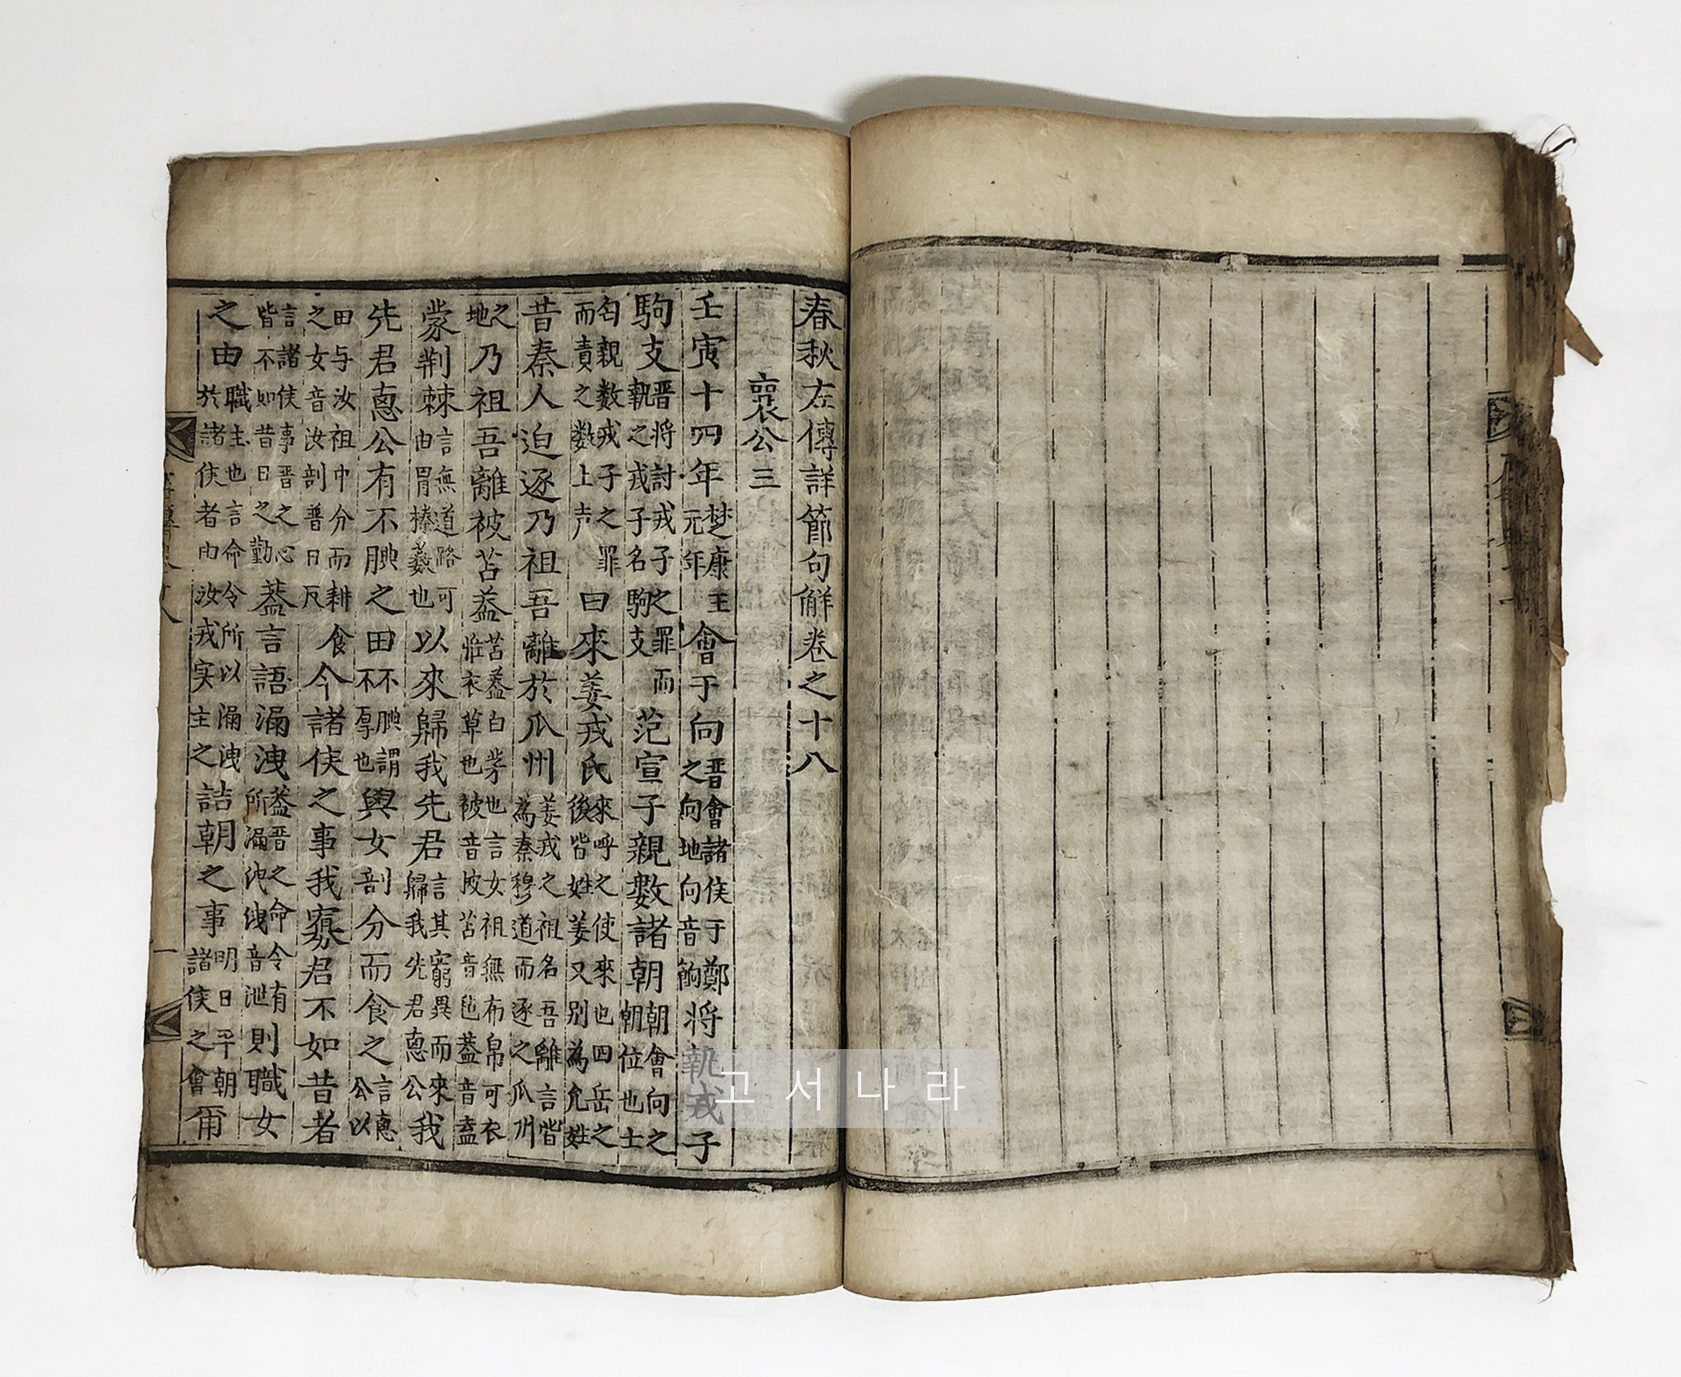 春秋左傳詳節句解卷之十八
襄公三
壬寅十四年楚康王元年會于向晋會諸侯于鄭之向地向音餉將執戎子
駒支晋将討戎子之罪而執之戎子名駒支范宣子親數諸朝朝會向之朝位也士
匄親数戎子之罪而責之数上声曰來姜戎氏來呼之使來也四岳之後皆姓姜又別為允姓
昔秦人迫逐乃祖吾離於瓜州姜戎之祖名吾離言皆為秦穆道而逐之瓜州
之地乃祖吾離被苫盖苫盖白茅也言女祖無布帛可衣惟衣草也被音披苫音盖音盍
蒙荆棘言無道路可由冐榛也以來歸我先君言其窮異而來歸我先君惠公我
先君惠公有不腆之田不腆謂不厚也與女剖分而食之言惠公以
田与汝祖中分而耕食之女音汝剖普日反今諸侯之事我寡君不如昔者
言諸侯事晋之心皆不如昔日之勤盖言語漏洩盖晋之命令有所漏洩洩音泄則職女
之由職主也言命令所以漏洩於諸侯者由汝戎実主之詰朝之事明日平朝諸侯之會爾
고서나라